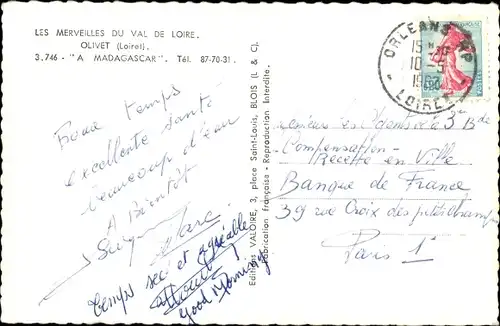 LES MERVEILLES DU VAL DE LOIRE.
OLIVET (Loiret).
3.746 - "A MADAGASCAR". Tél. 87-70-31.
temps
excellente santé
beaucoup d'eau
A Bientôt
Marc
temps sec et agréable
Good Morning
Editions VALOIRE, 3, place Saint-Louis, BLOIS (L & C).
Fabrication Française - Reproduction Interdite.
ORLEANS
10-5
LOIRET
POSTES
3 Bd
Compensation-
Recette en Ville
Banque de France
39 rue Croix des petits champs
Paris 1